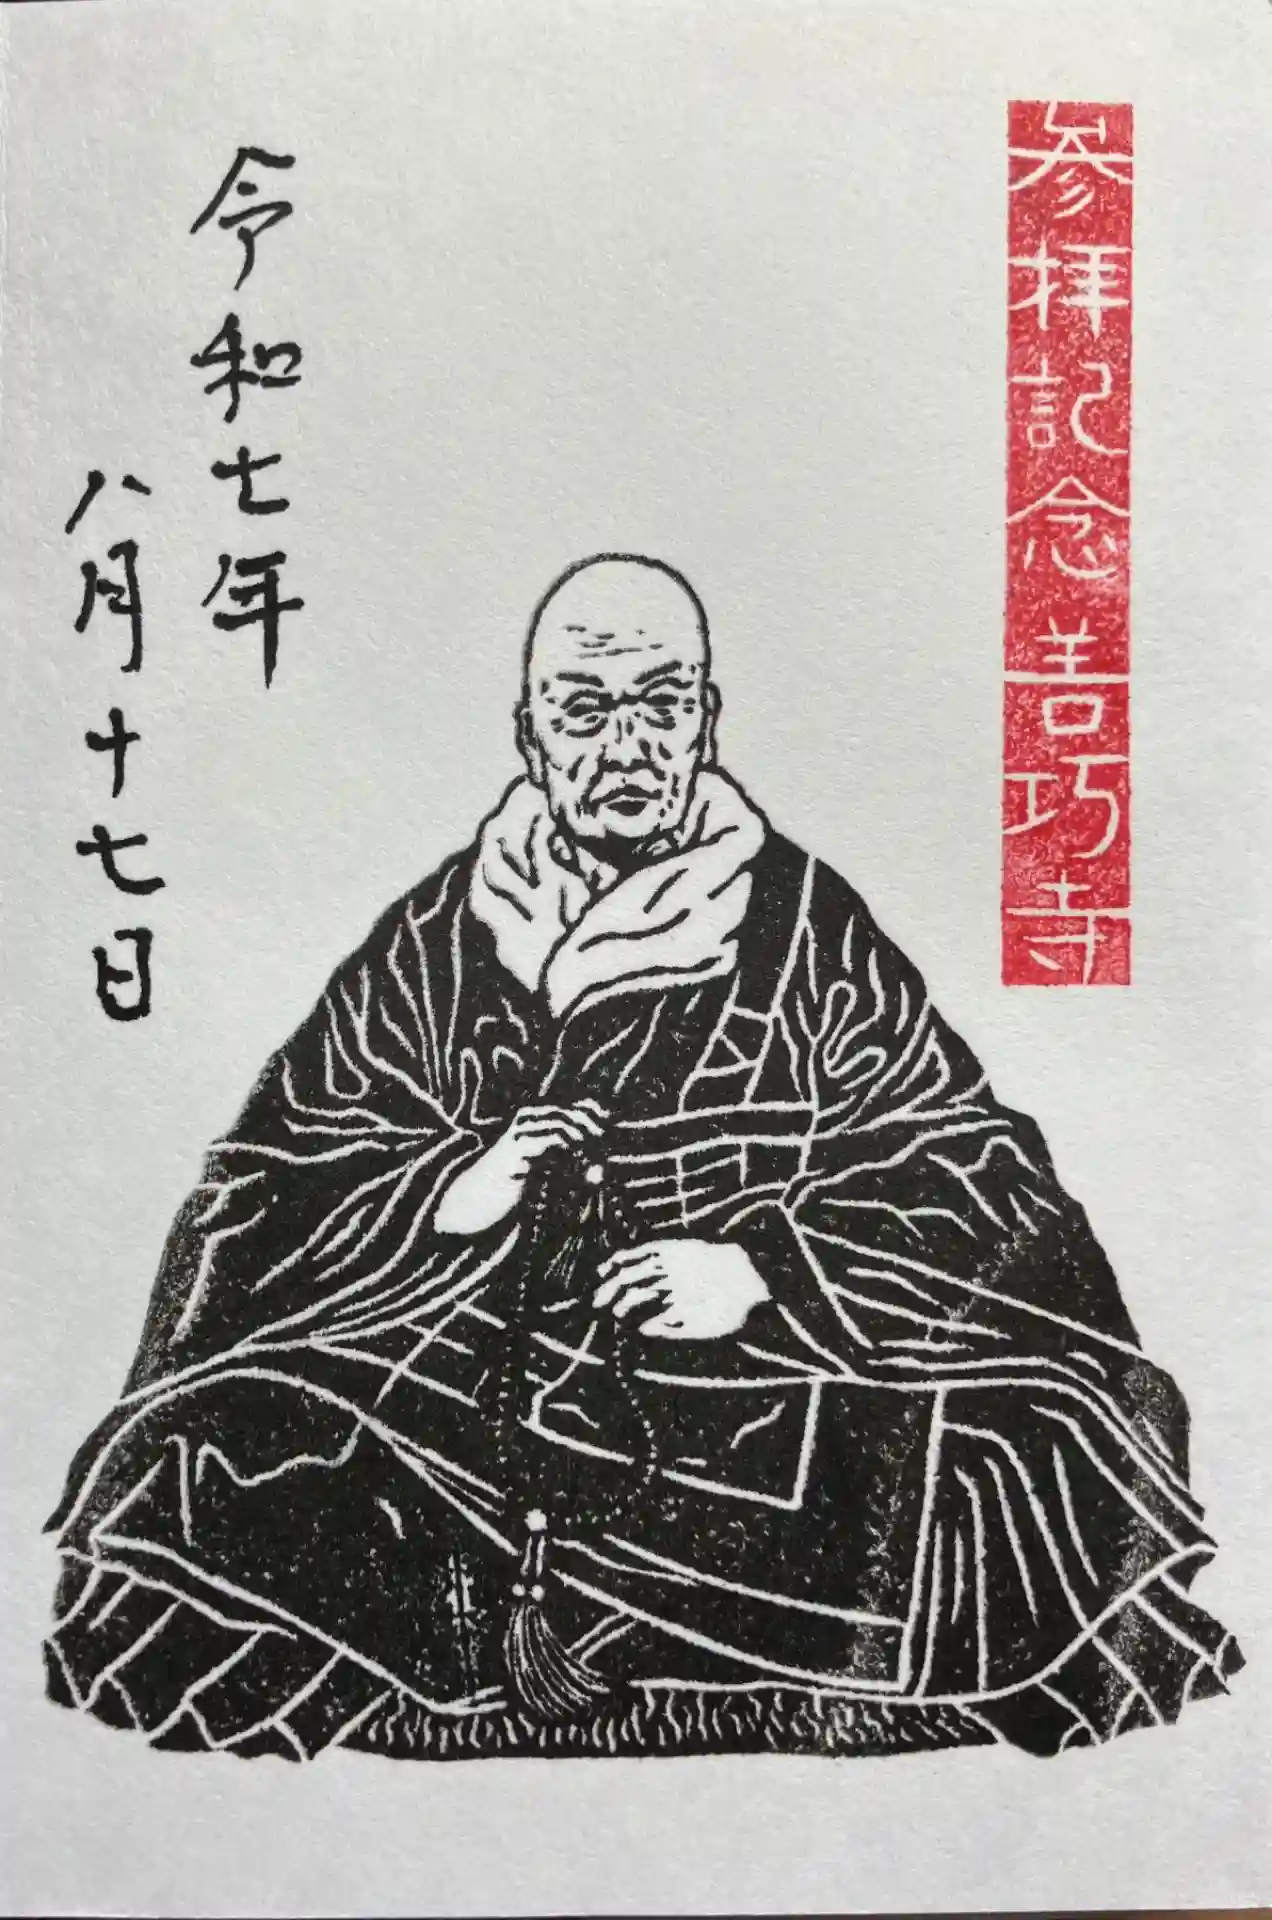 参拝記念善巧寺
令和七年
八月十七日